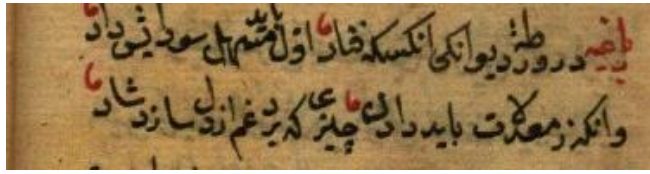 در ورطهٔ دیوانکی انکسکه فتاد اول باید مسهل سوداییش داد
وانکه ز معدلات باید دادن چیزی که برد غم از دل سازد شاد